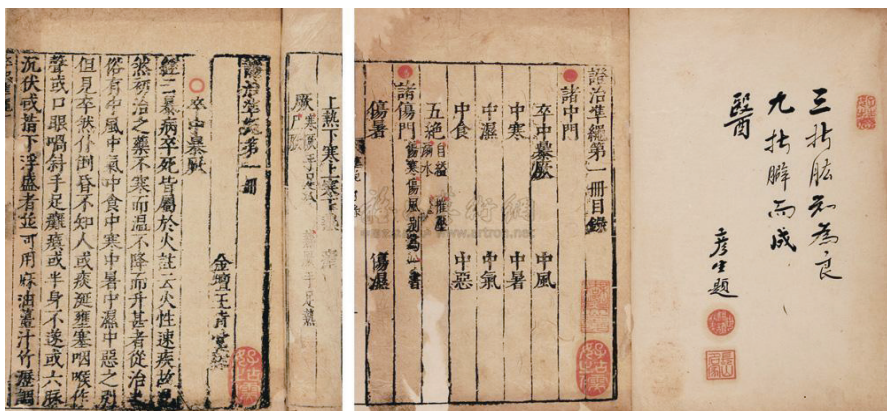 三折肱知為良
九折臂而成
醫
彥生題
證治準繩第一冊目錄
諸中門
卒中暴厥 中風
中寒 中暑
中濕 中氣
中食 中惡
五絕 自縊 摧壓 溺水
諸傷門 傷寒傷風別為一書
傷暑 傷濕
上熱下寒上寒下熱
厥
證治準繩第一冊
金壇王肯堂
卒中暴厥
經云暴病卒死皆屬於火註云火性速疾故也
然初治之藥不寒而溫不降而升甚者從治也
俗有中風中氣中食中寒中暑中濕中惡之別
但見卒然仆倒昏不知人或痰涎壅塞咽喉作
聲或口眼喎斜手足癱瘓或半身不遂或六脈
沉伏或指下浮盛者並可用麻油薑汁竹瀝調